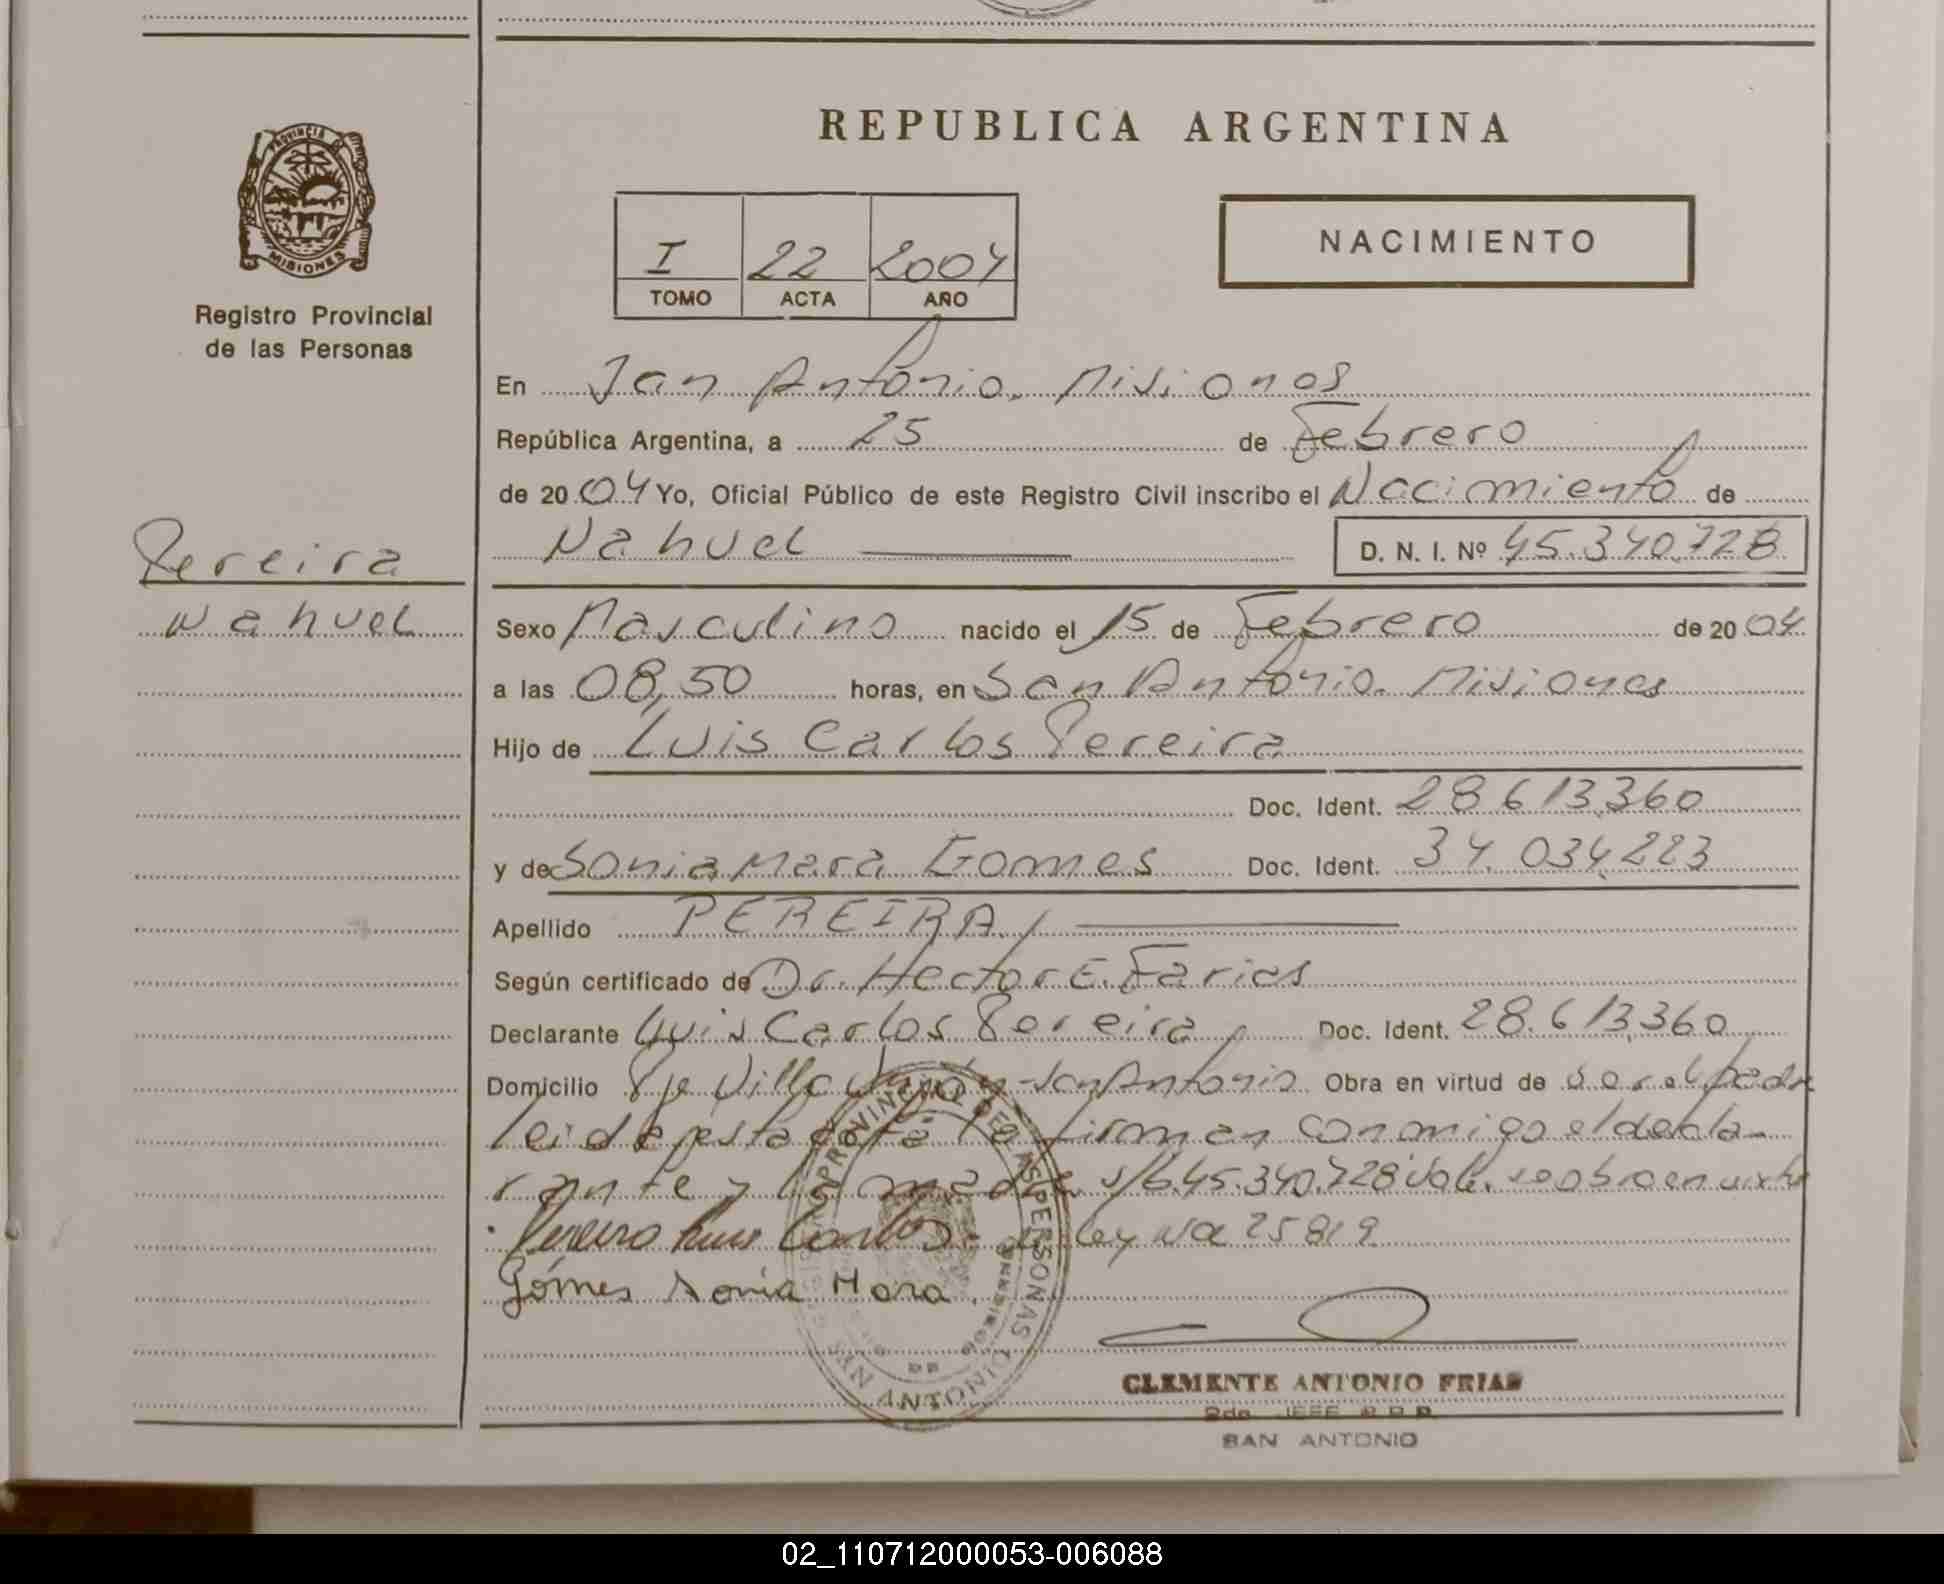 REPUBLICA ARGENTINA
PROVINCIA DE
MISIONES
Registro Provincial
de las Personas
I 22 2004
TOMO ACTA AÑO
NACIMIENTO
En San Antonio. Misiones
República Argentina, a 25 de Febrero
de 2004 Yo, Oficial Público de este Registro Civil inscribo el Nacimiento de
Nahuel D. N. I. Nº 45.340.728
Pereira
Nahuel
Sexo Masculino nacido el 15 de Febrero de 2004
a las 08,50 horas, en San Antonio. Misiones
Hijo de Luis Carlos Pereira
Doc. Ident. 28.613.360
y de Sonia Mara Gomes Doc. Ident. 34.034.223
Apellido PEREIRA
Según certificado de Dr. Hector E. Farias
Declarante Luis Carlos Pereira Doc. Ident. 28.613.360
Domicilio Pje Villa San Antonio Obra en virtud de ser el padre
leida esta acta la firman conmigo el decla-
rante y la madre s/b.45.340.728 Vale. se obro en virtud
Pereira Luis Carlos. ley Nº 25819
Gómes Sonia Mara.
REGISTRO PROVINCIAL DE LAS PERSONAS
SAN ANTONIO
CLEMENTE ANTONIO FRIAS
2do JEFE R.P.P.
SAN ANTONIO
02_110712000053-006088